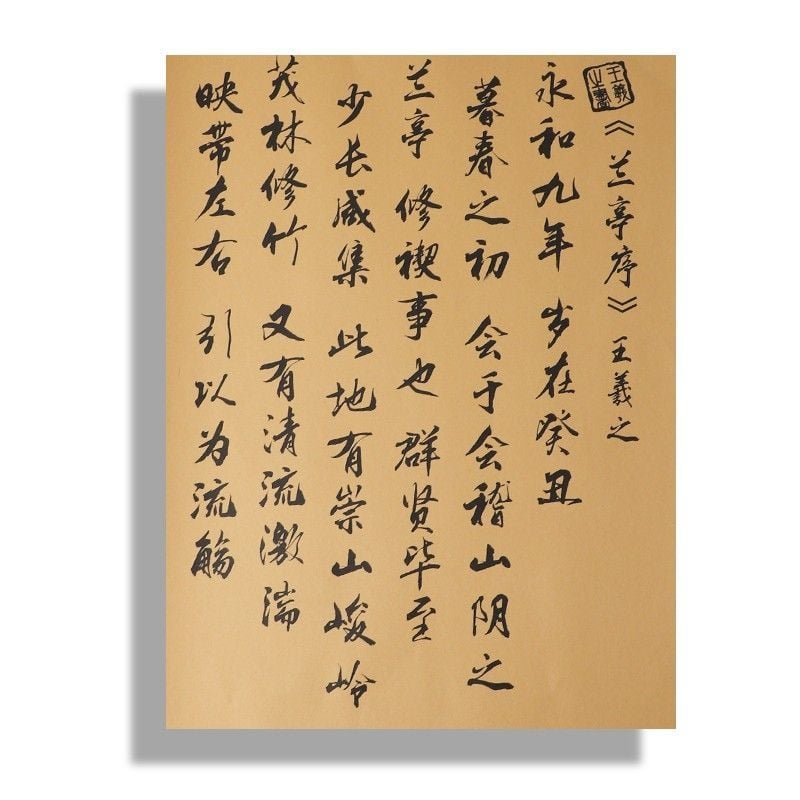 《兰亭序》 王羲之
永和九年 岁在癸丑
暮春之初 会于会稽山阴之
兰亭 修禊事也 群贤毕至
少长咸集 此地有崇山峻岭
茂林修竹 又有清流激湍
映带左右 引以为流觞